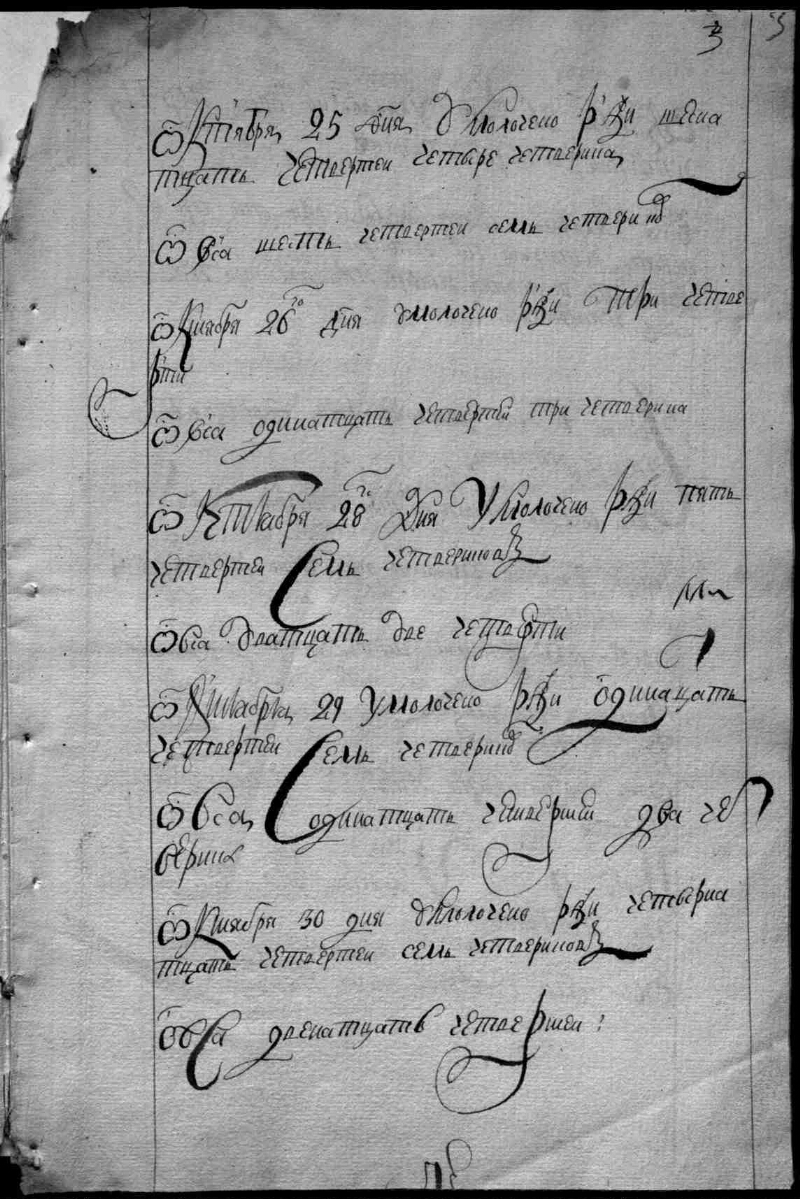 3 3
Ѿктября 25 дня умолочено ржи шесна
тцать четвертей четыре четверика
Ѿвса шесть четвертей семь четверик
Ѿктября 26 го дня умолочено ржи три четве
рти
Ѿвса одинатцать четвертей три четверика
Ѿктября 28 го Дня Умолочено ржи пять
четвертей Семь четвериковъ
Ѿвса дватцать две четверти
Ѿктября 29 умолочено ржи одинацать
четвертей Семь четверик
Ѿвса одинатцать четвертей два чет
верика
Ѿктября 30 дня умолочено ржи четверна
тцать четвертей семь четвериковъ
Ѿвса двенатцать четвертей